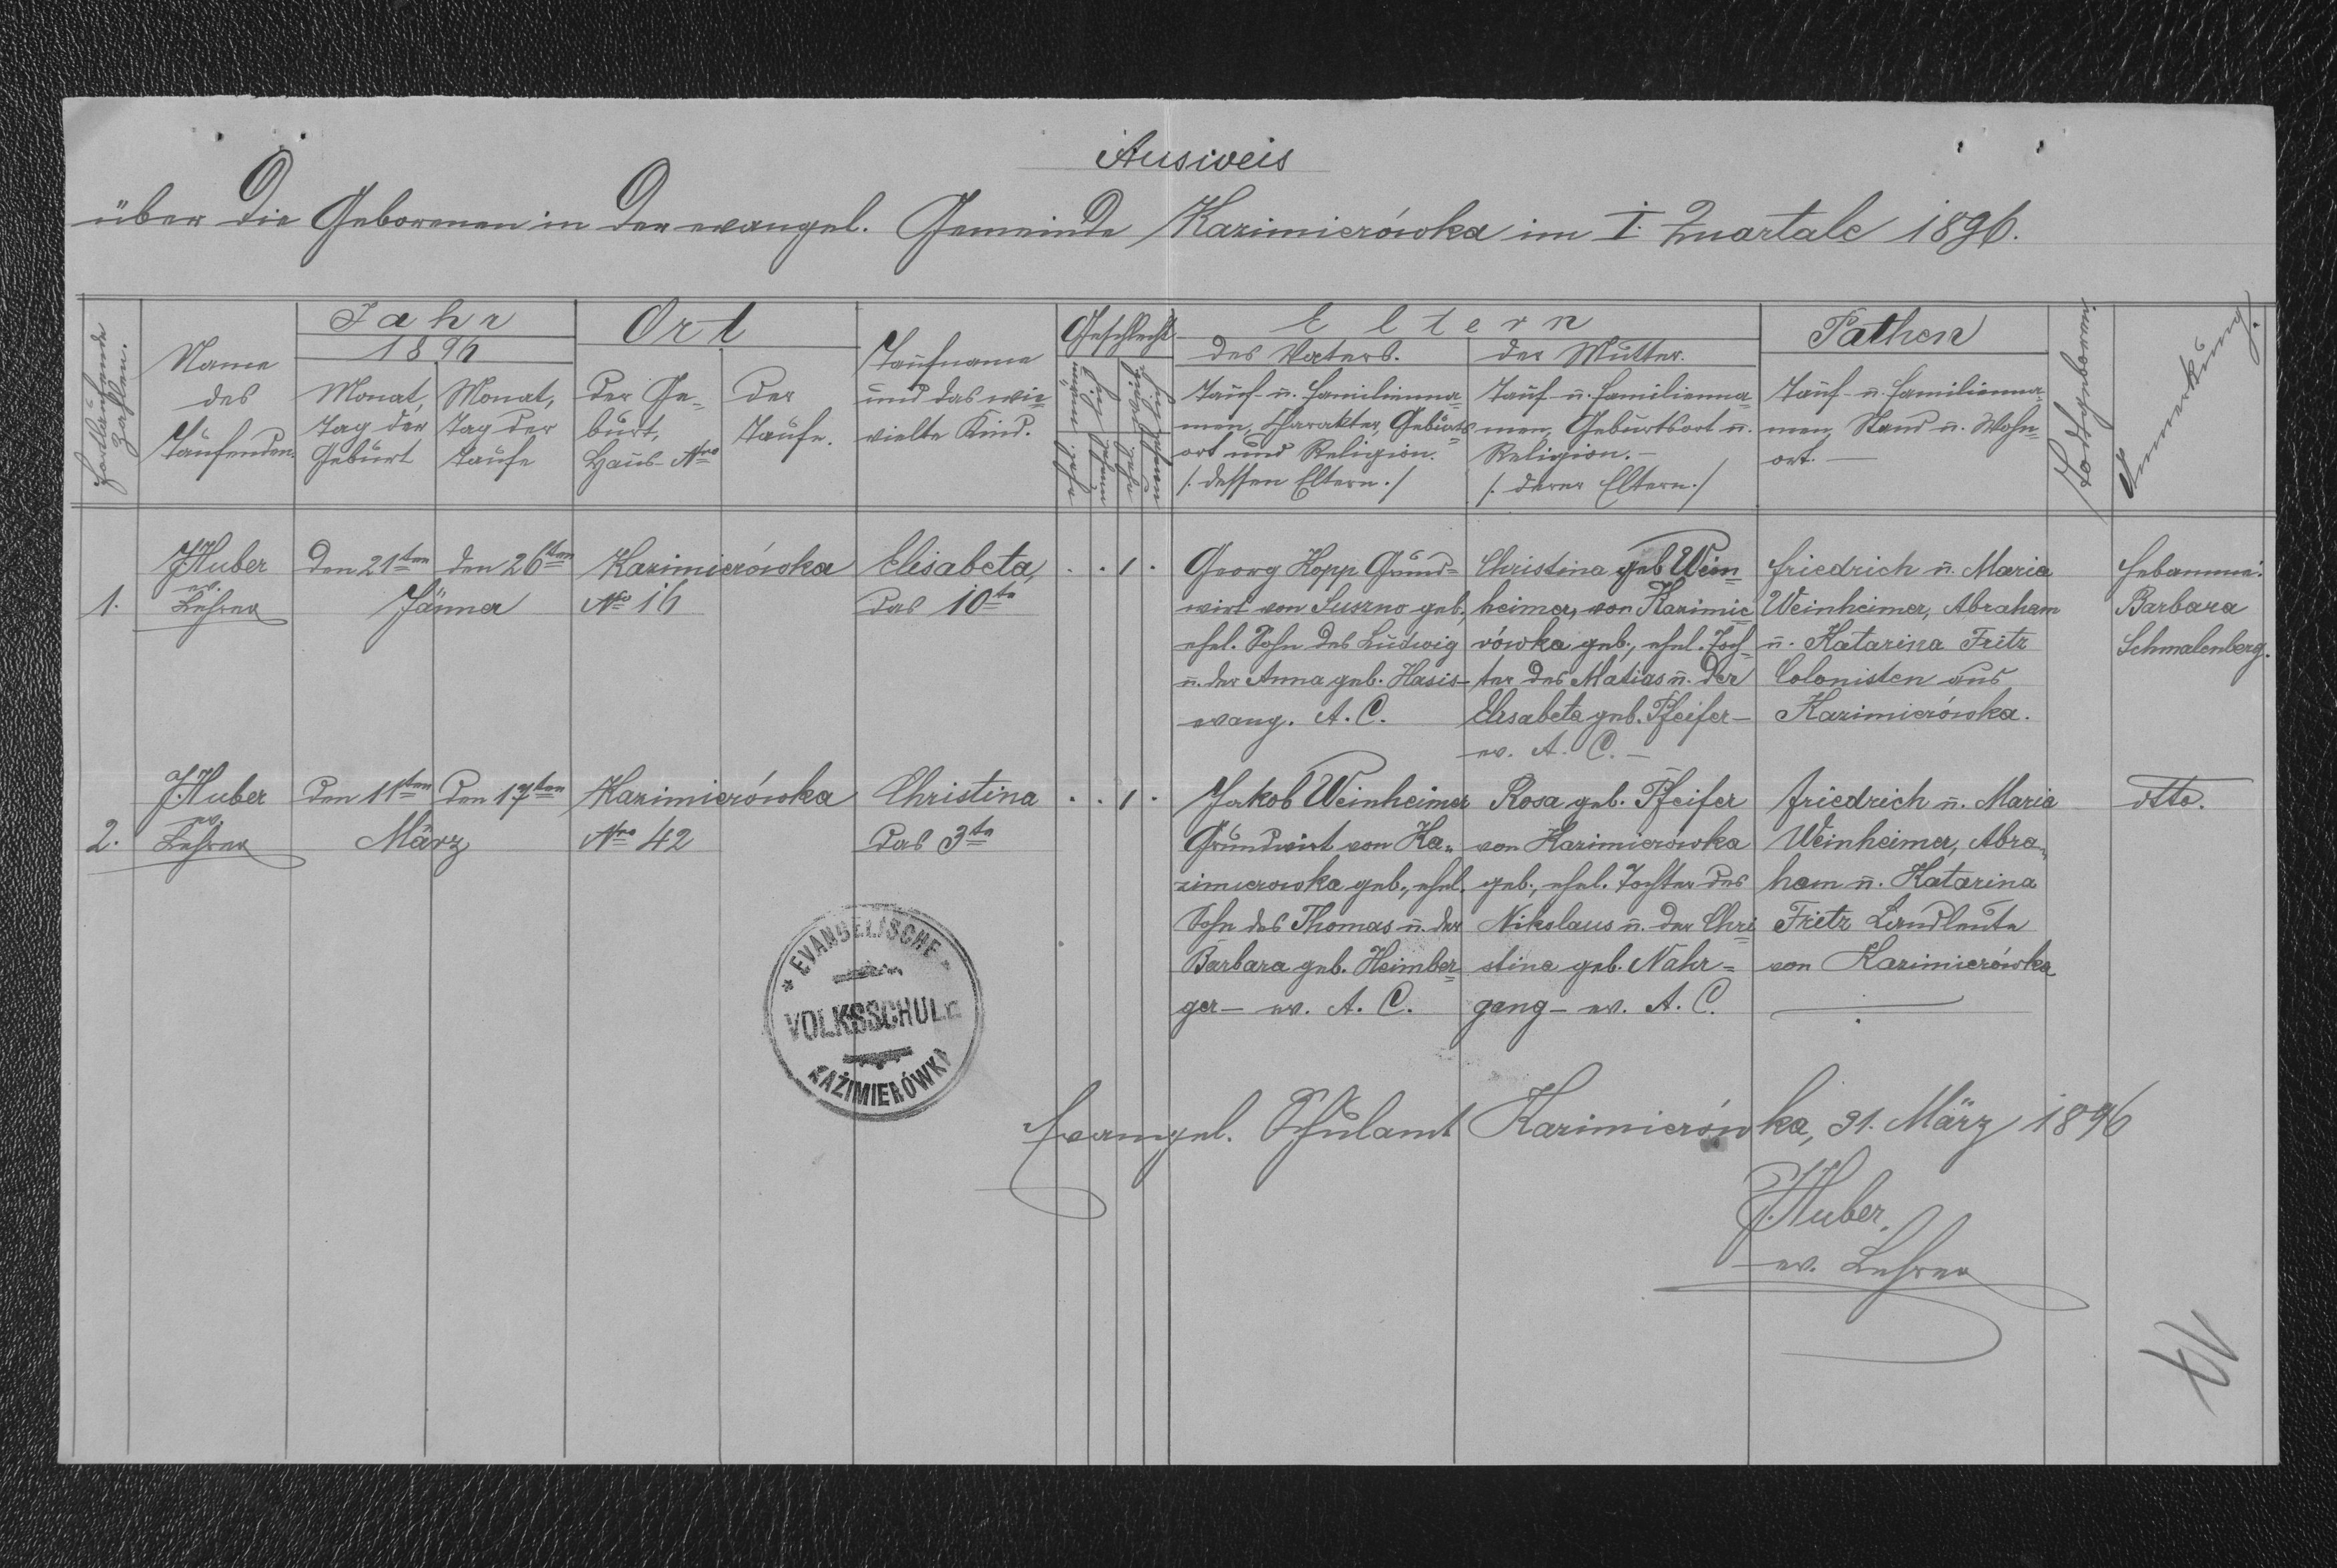 Ausweis
über die Geborenen in der evangel. Gemeinde Kazimierówka im I. Quartale 1896.
Fortlaufende Zahlen.
Name
des
Taufenden.
Jahr
1896
Monat,
Tag der
Geburt
Monat,
Tag der
Taufe
Ort
der Ge=
burt,
Haus-Nro
der
Taufe.
Taufname
und das wie=
vielte Kind.
Geschlecht
Eltern
des Vaters.
Tauf- u. Familienna=
men, Charakter, Geburts=
ort und Religion.
/. dessen Eltern ./
der Mutter.
Tauf- u. Familienna=
men, Geburtsort u.
Religion. —
/. derer Eltern ./
Pathen
Tauf- u. Familienna=
men, Stand u. Wohn=
ort. —
Todtgeboren.
Anmerkung.
1.
J. Huber
ev.
Lehrer
den 21ten
den 26ten
Jänner
Kazimierówka
No 16
Elisabeta,
das 10te
. . 1 .
Georg Kopp Grund=
wirt von Suszno geb.,
ehel. Sohn des Ludwig
u. der Anna geb. Hasis—
evang. A. C.
Christina geb. Wein=
heimer, von Kazimie=
rówka geb., ehel. Toch=
ter des Matias u. der
Elisabeta geb. Pfeifer —
ev. A. C. —
Friedrich u. Maria
Weinheimer, Abraham
u. Katarina Fritz
Colonisten aus
Kazimierówka.
Hebamme:
Barbara
Schmalenberg.
2.
J. Huber
ev.
Lehrer
den 11ten
den 17ten
März
Kazimierówka
Nro 42
Christina
das 3te
. . 1 .
Jakob Weinheimer
Grundwirt von Ka=
zimierowka geb., ehel.
Sohn des Thomas u. der
Barbara geb. Heimber=
ger — ev. A. C.
Rosa geb. Pfeifer
von Kazimierowka
geb., ehel. Tochter des
Nikolaus u. der Chri=
stina geb. Nahr=
gang — ev. A. C.
Friedrich u. Maria
Weinheimer, Abra=
ham u. Katarina
Fritz Landleute
von Kazimierówka
dtto.
* EVANGELISCHE
VOLKSSCHULE
KAŹIMIERÓWKA
Evangel. Schulamt Kazimierówka, 31. März 1896
J. Huber,
ev. Lehrer